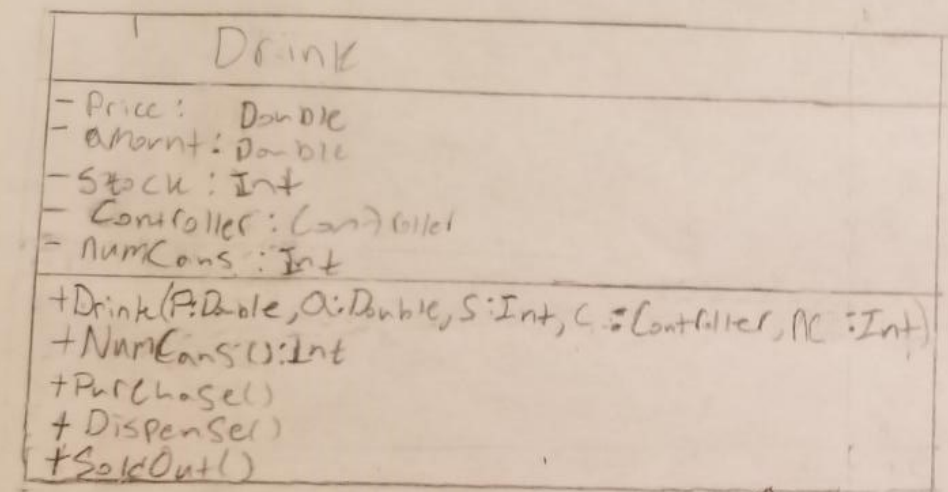 Drink
- Price: Double
- amount: Double
- Stock: Int
- Controller: Controller
- numCans: Int
+Drink(P:Double, a:Double, S:Int, C:Controller, nC:Int)
+NumCans():Int
+Purchase()
+ Dispense()
+SoldOut()